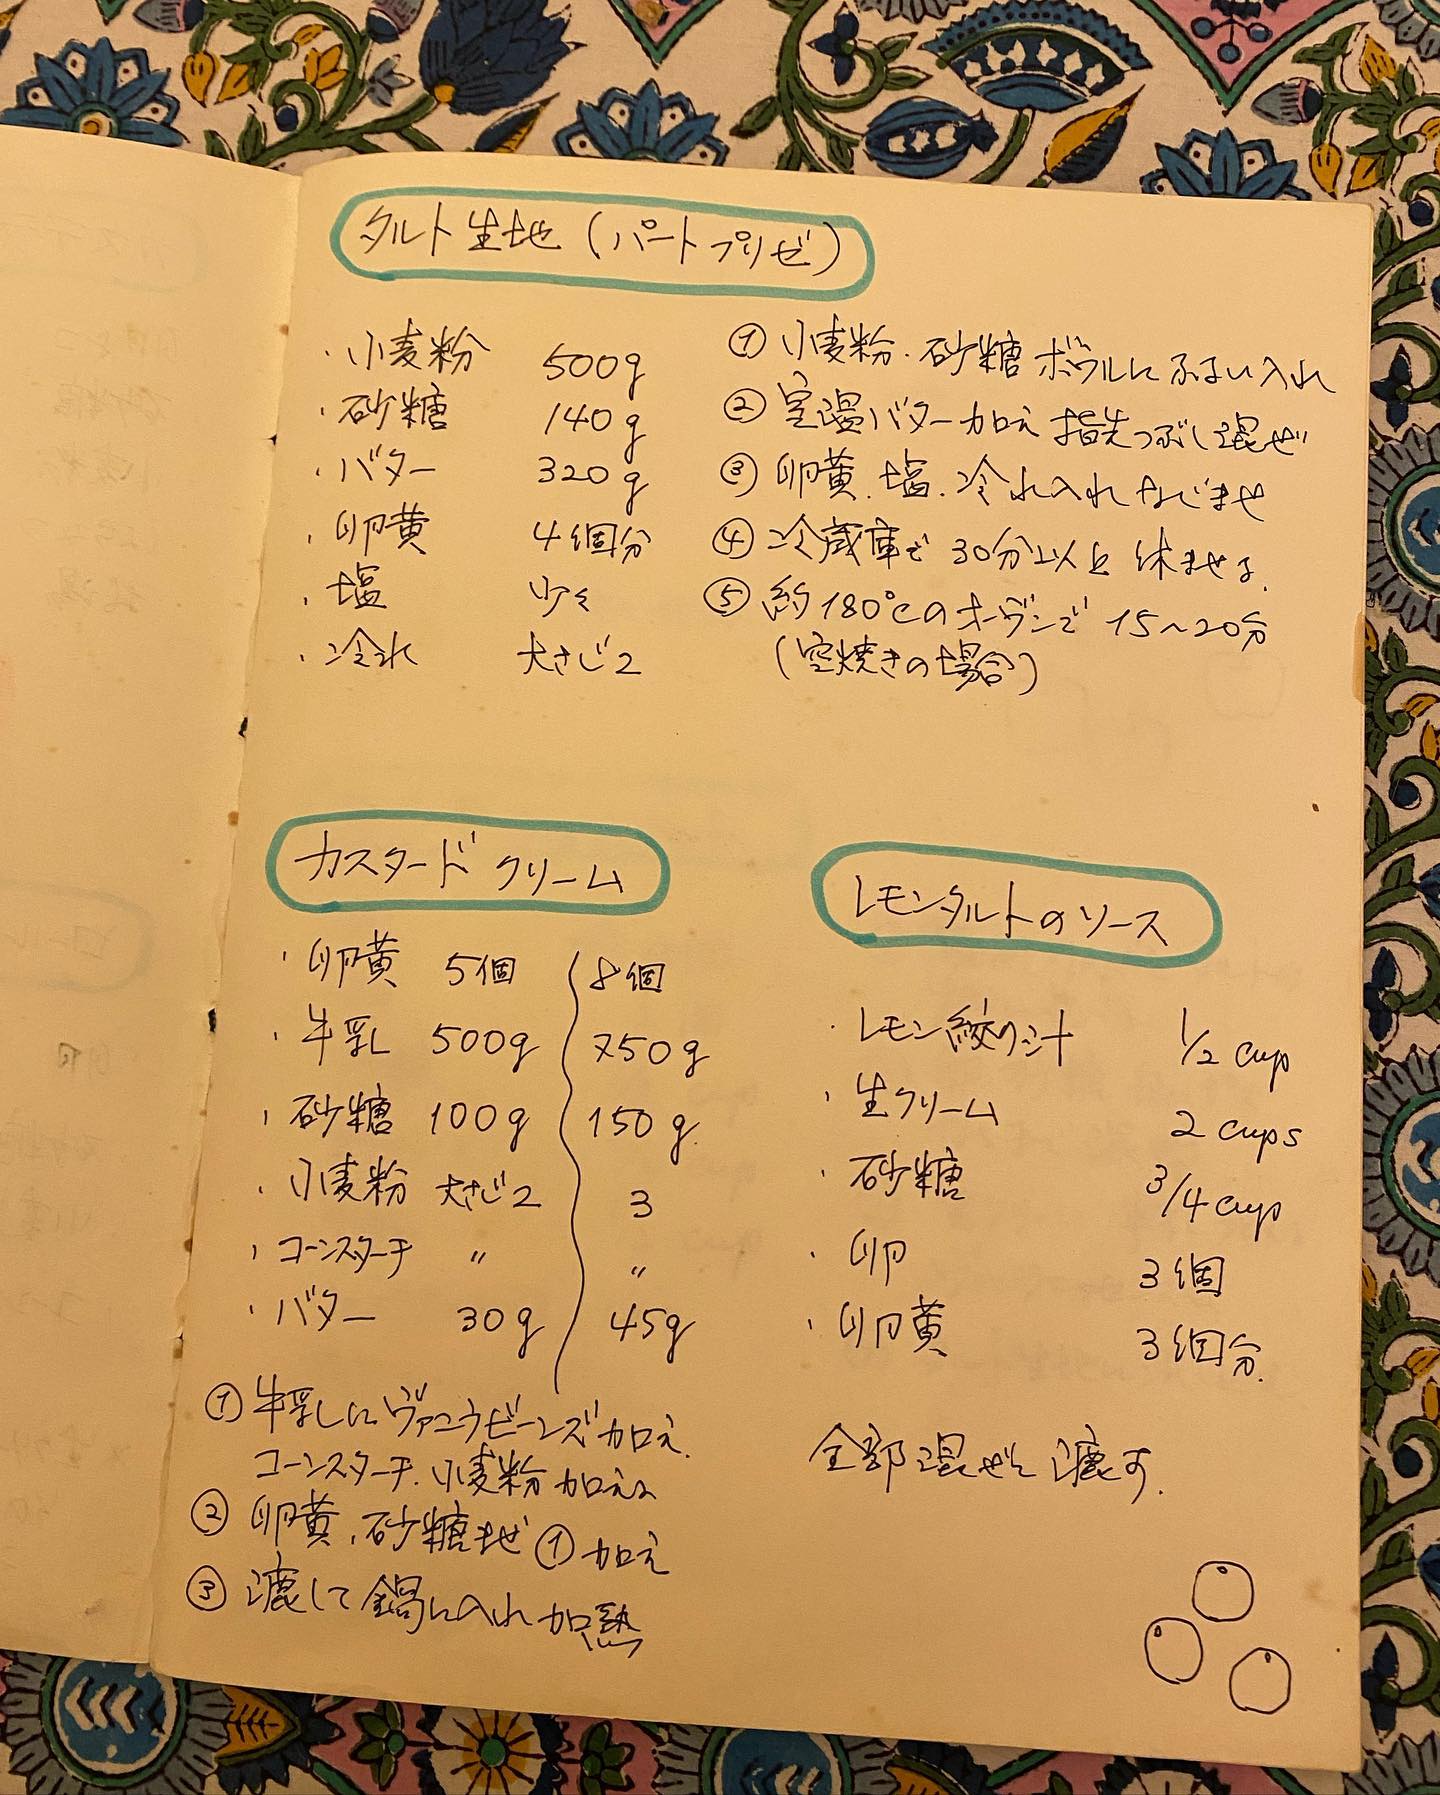 タルト生地(パートブリゼ)
・小麦粉 500g
・砂糖 140g
・バター 320g
・卵黄 4個分
・塩 少々
・冷水 大さじ2
① 小麦粉・砂糖 ボウルにふるい入れ
② 室温バター加え 指先つぶし混ぜ
③ 卵黄、塩、冷水入れ なでませ
④ 冷蔵庫で 30分以上 休ませる.
⑤ 約180℃のオーヴンで 15〜20分
(空焼きの場合)
カスタードクリーム
・卵黄 5個 8個
・牛乳 500g 750g
・砂糖 100g 150g
・小麦粉 大さじ2 3
・コーンスターチ 〃 〃
・バター 30g 45g
① 牛乳にヴァニラビーンズ加え.
コーンスターチ、小麦粉加える
② 卵黄、砂糖まぜ ① 加え
③ 漉して鍋に入れ加熱
レモンタルトのソース
・レモン絞り汁 1/2 cup
・生クリーム 2 cups
・砂糖 3/4 cup
・卵 3個
・卵黄 3個分.
全部混ぜて 漉す.